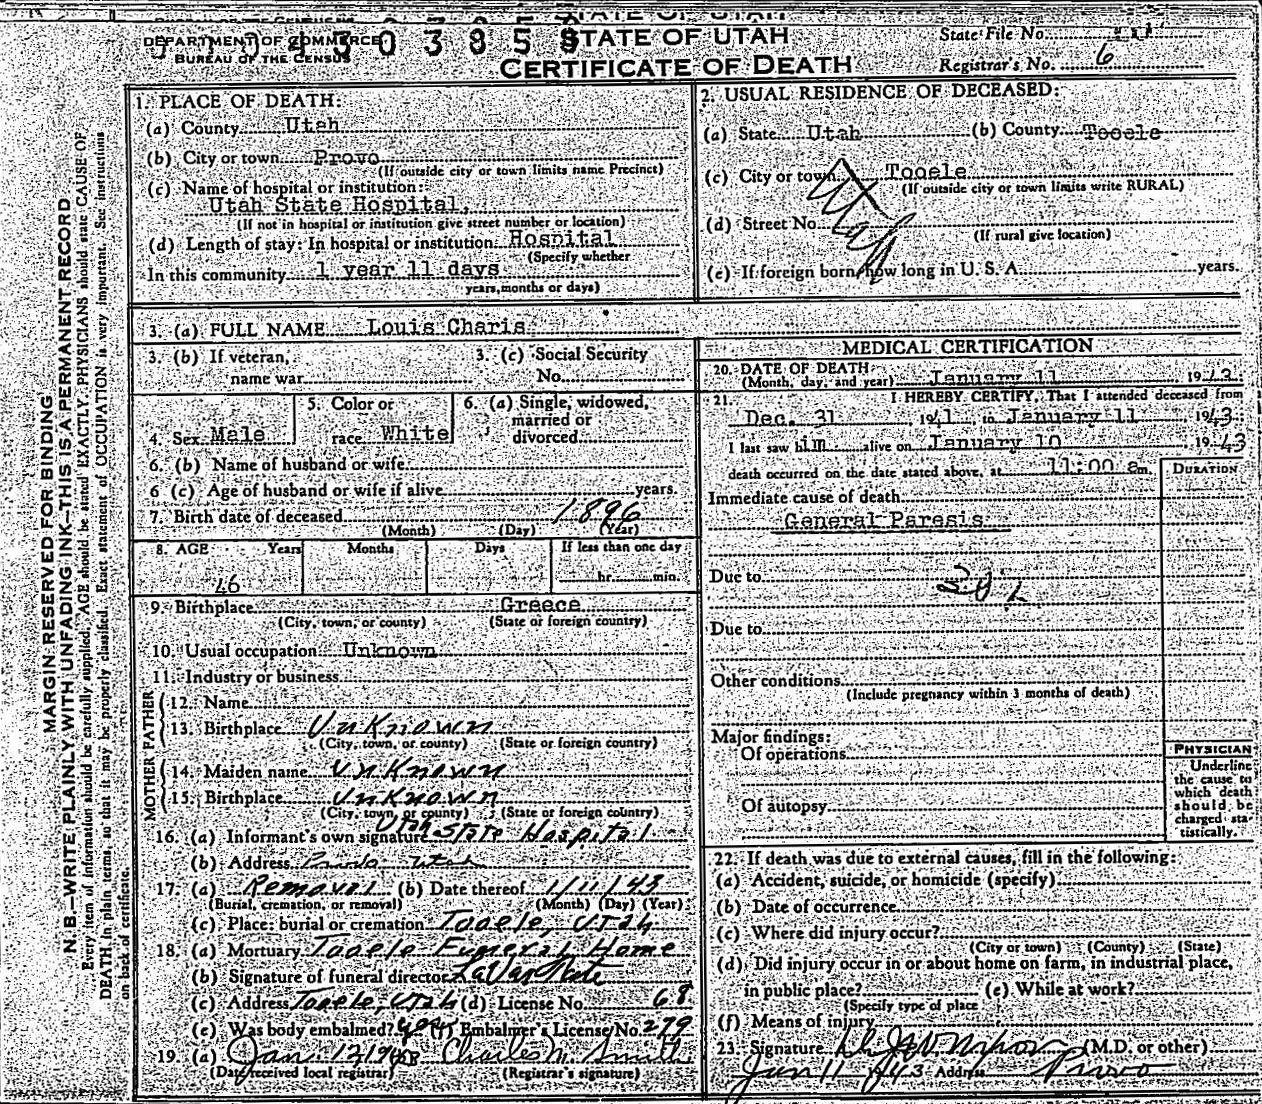 STATE OF UTAH
DEPARTMENT OF COMMERCE
BUREAU OF THE CENSUS
STATE OF UTAH
CERTIFICATE OF DEATH
State File No.
Registrar's No. 6
MARGIN RESERVED FOR BINDING
N. B.—WRITE PLAINLY, WITH UNFADING INK—THIS IS A PERMANENT RECORD
Every item of information should be carefully supplied. AGE should be stated EXACTLY. PHYSICIANS should state CAUSE OF
DEATH in plain terms so that it may be properly classified. Exact statement of OCCUPATION is very important. See instructions
on back of certificate.
1. PLACE OF DEATH:
(a) County Utah
(b) City or town Provo
(If outside city or town limits name Precinct)
(c) Name of hospital or institution:
Utah State Hospital,
(If not in hospital or institution give street number or location)
(d) Length of stay: In hospital or institution Hospital
(Specify whether
In this community 1 year 11 days
years, months or days)
2. USUAL RESIDENCE OF DECEASED:
(a) State Utah (b) County Tooele
(c) City or town Tooele
(If outside city or town limits write RURAL)
(d) Street No.
(If rural give location)
(e) If foreign born, how long in U. S. A. years.
3. (a) FULL NAME Louis Charis
3. (b) If veteran, name war
3. (c) Social Security No.
4. Sex Male
5. Color or race White
6. (a) Single, widowed, married or divorced
6. (b) Name of husband or wife
6 (c) Age of husband or wife if alive years.
7. Birth date of deceased 1896
(Month) (Day) (Year)
8. AGE Years Months Days If less than one day
46 hr. min.
9. Birthplace Greece
(City, town, or county) (State or foreign country)
10. Usual occupation Unknown
11. Industry or business
FATHER
12. Name
13. Birthplace Unknown
(City, town, or county) (State or foreign country)
MOTHER
14. Maiden name Unknown
15. Birthplace Unknown
(City, town, or county) (State or foreign country)
16. (a) Informant's own signature Utah State Hospital
(b) Address Provo Utah
17. (a) Removal (b) Date thereof 1/11/43
(Burial, cremation, or removal) (Month) (Day) (Year)
(c) Place: burial or cremation Tooele, Utah
18. (a) Mortuary Tooele Funeral Home
(b) Signature of funeral director
(c) Address Tooele, Utah (d) License No. 68
(e) Was body embalmed? yes Embalmer's License No. 279
19. (a) Jan. 12 1943 Charles M. Smith
(Date received local registrar) (Registrar's signature)
MEDICAL CERTIFICATION
20. DATE OF DEATH:
(Month, day, and year) January 11 1943
21. I HEREBY CERTIFY, That I attended deceased from
Dec. 31, 1941, to January 11 1943.
I last saw him alive on January 10, 1943
death occurred on the date stated above, at 11:00 a m.
DURATION
Immediate cause of death
General Paresis
Due to
Due to
Other conditions
(Include pregnancy within 3 months of death)
Major findings:
Of operations
Of autopsy
PHYSICIAN
Underline
the cause to
which death
should be
charged sta-
tistically.
22. If death was due to external causes, fill in the following:
(a) Accident, suicide, or homicide (specify)
(b) Date of occurrence
(c) Where did injury occur?
(City or town) (County) (State)
(d) Did injury occur in or about home on farm, in industrial place,
in public place? (e) While at work?
(Specify type of place
(f) Means of injury
23. Signature (M.D. or other)
Jan 11 1943 Address Provo